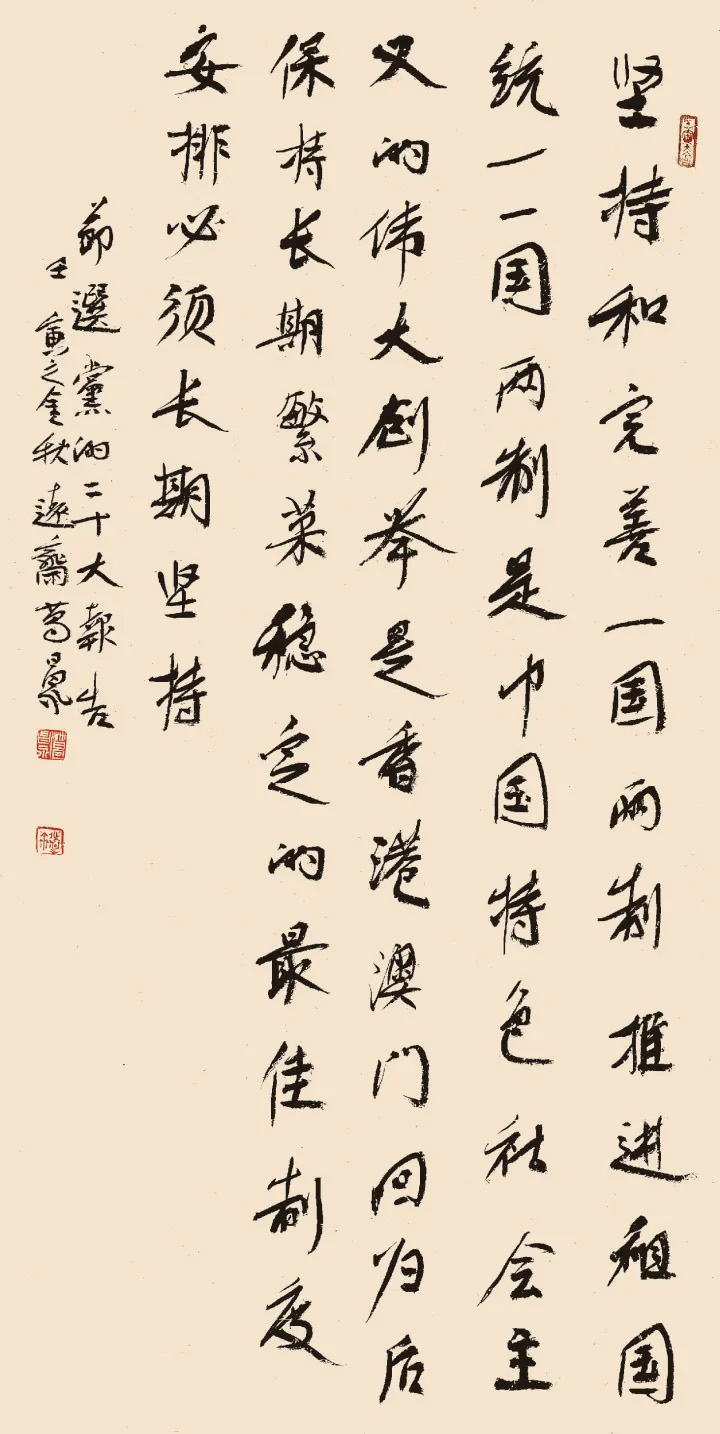 坚持和完善一国两制推进祖国
统一一国两制是中国特色社会主
义的伟大创举是香港澳门回归后
保持长期繁荣稳定的最佳制度
安排必须长期坚持
節選黨的二十大報告
壬寅之金秋遠齋葛